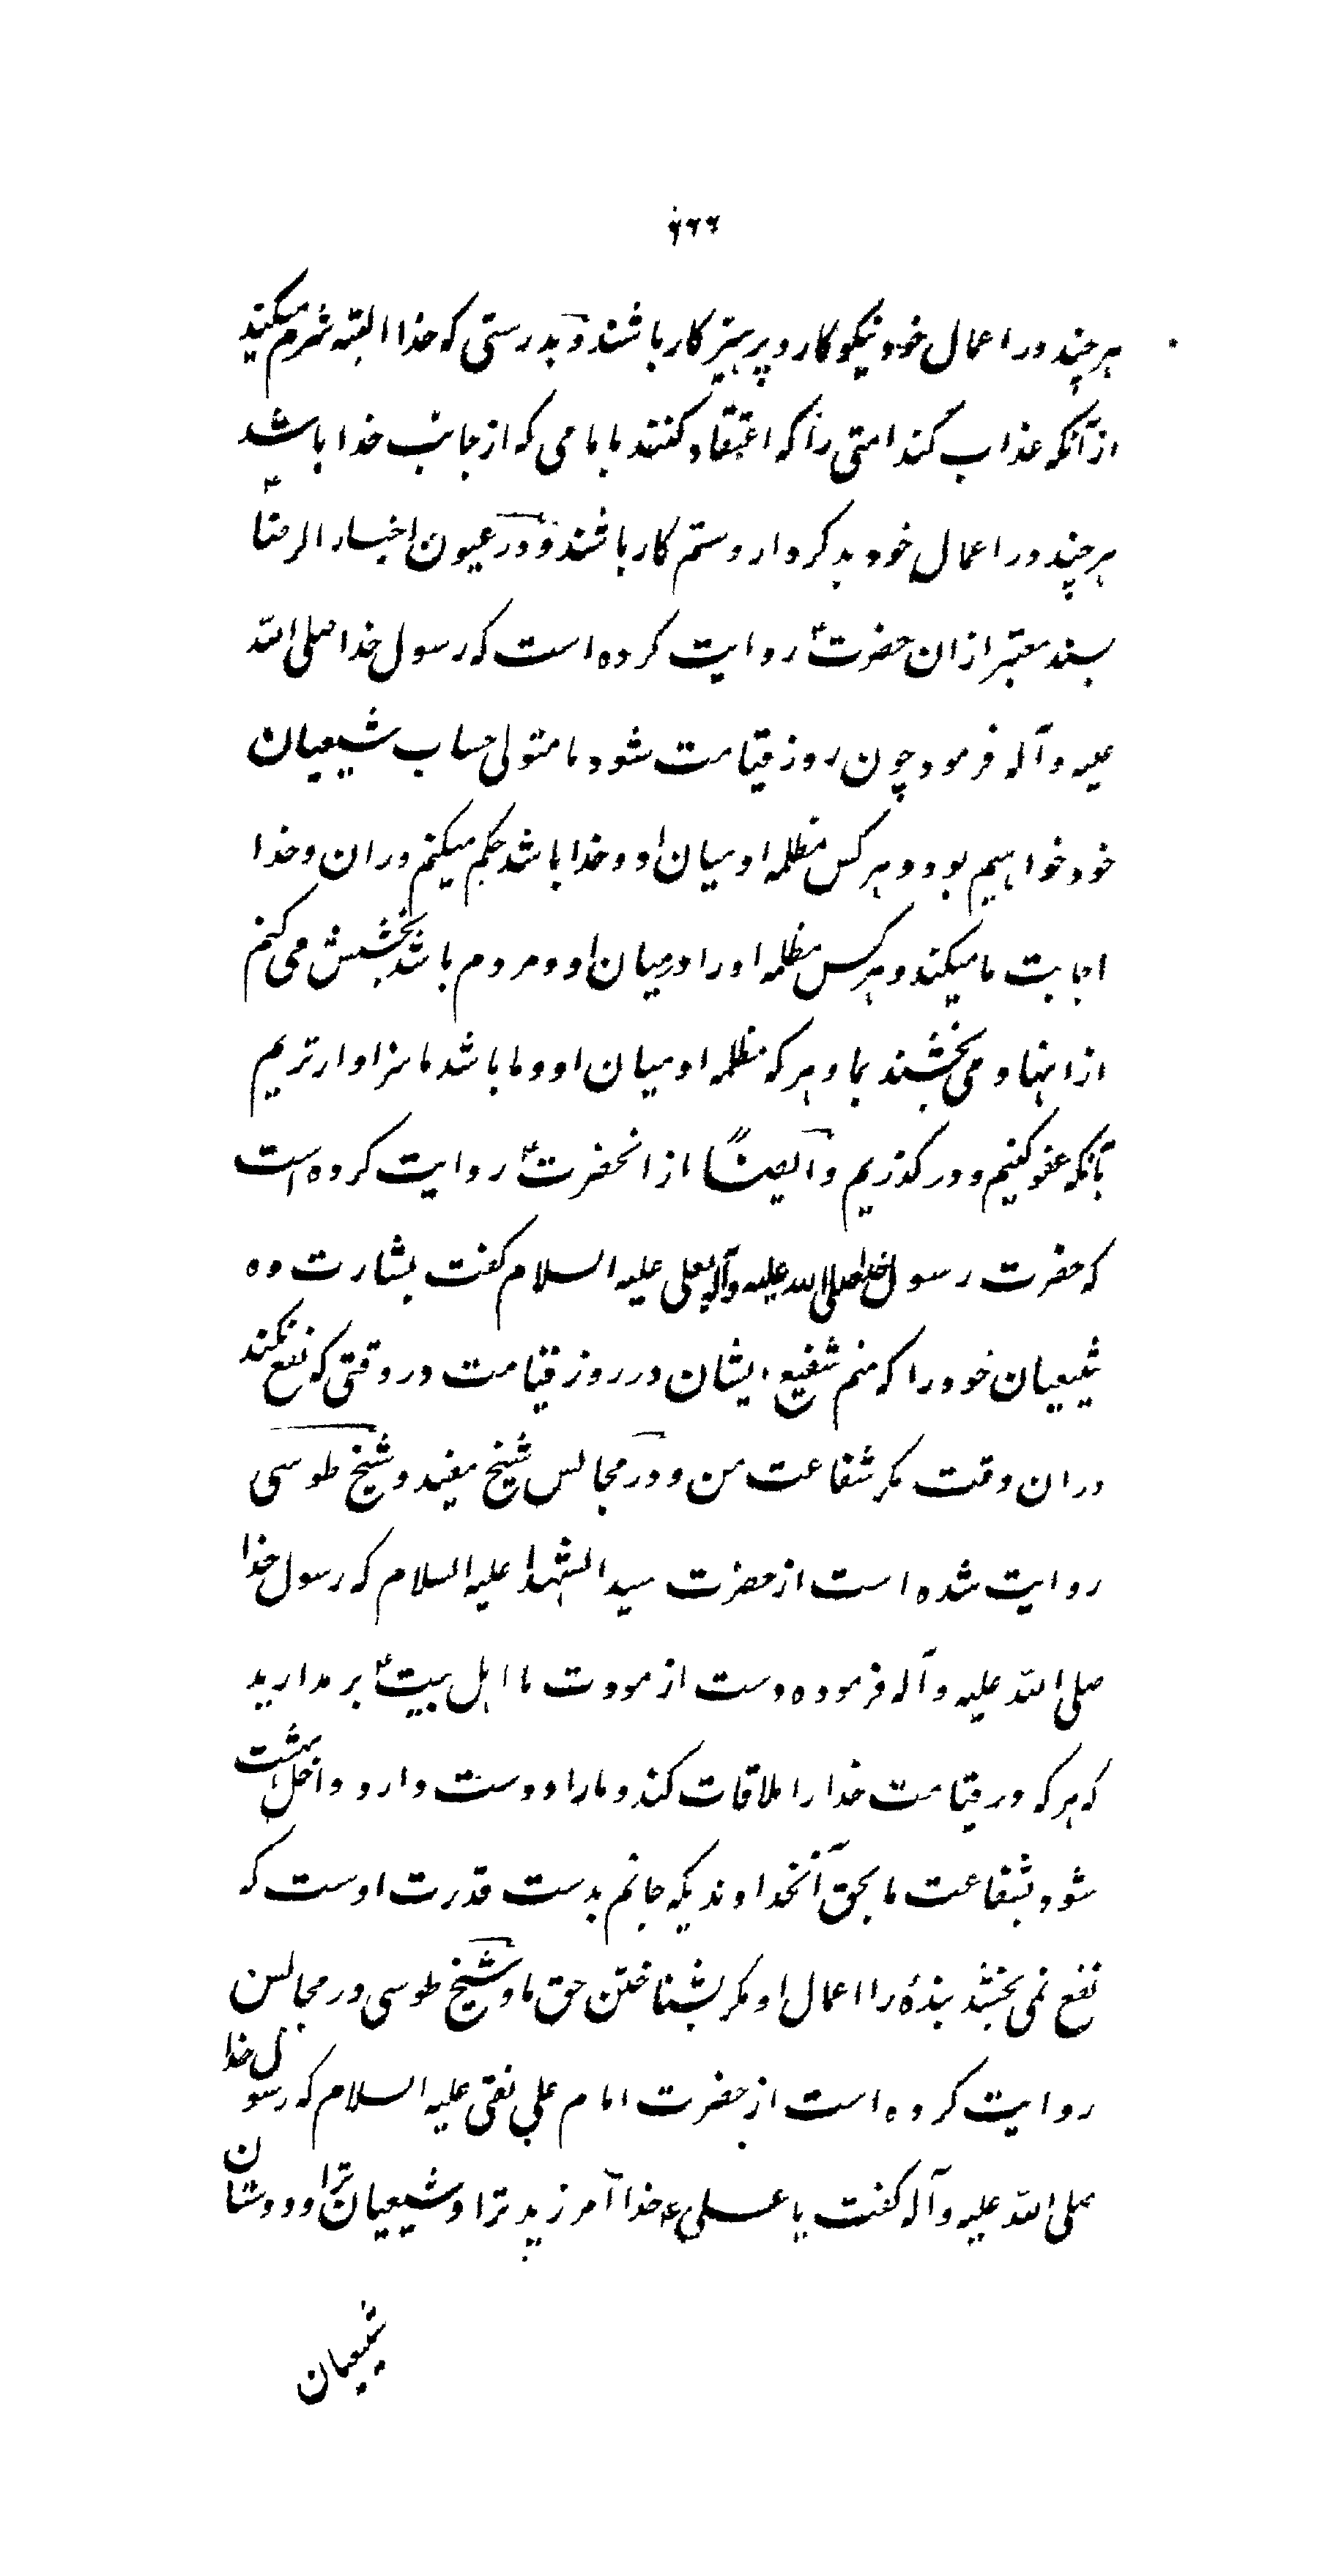 ۶۶۶
هر چند در اعمال خود نیکو کار و پرهیز کار باشند و بدرستی که خدا البته شرم میکند
از آنکه عذاب کند امتی را که اعتقاد کنند بامامی که از جانب خدا باشد
هر چند در اعمال خود بد کردار و ستم کار باشند و در عیون اخبار الرضا ع
بسند معتبر از ان حضرت ع روایت کرده است که رسول خدا صلی الله
علیه و آله فرمود چون روز قیامت شود ما متولی حساب شیعیان
خود خواهیم بود و هر کس مظلمه او میان او و خدا باشد حکم میکنم در ان و خدا
اجابت ما میکند و هر کس مظلمه او را در میان او و مردم باشد بخشش می کنم
از انها و می بخشند بما و هر که مظلمه او میان او و ما باشد ما سزاوار تریم
بآنکه عفو کنیم و در کذریم و ایضاً از انحضرت ع روایت کرده است
که حضرت رسول خدا صلی الله علیه وآله بعلی علیه السلام کفت بشارت ده
شیعیان خود را که منم شفیع ایشان در روز قیامت در وقتی که نفع نکند
در ان وقت مکر شفاعت من و در مجالس شیخ مفید و شیخ طوسی
روایت شده است از حضرت سید الشهدا علیه السلام که رسول خدا
صلی الله علیه و آله فرموده دست از مودت ما اهل بیت ع بر مدارید
که هر که در قیامت خدا را ملاقات کند و ما را دوست دارد داخل بهشت
شود بشفاعت ما بحق آنخداوندیکه جانم بدست قدرت اوست که
نفع نمی بخشد بندۀ را اعمال او مکر بشناختن حق ما و شیخ طوسی در مجالس
روایت کرده است از حضرت امام علی نقی علیه السلام که رسول خدا
صلی الله علیه و آله کفت یا علی ع خدا آمرزید ترا و شیعیان ترا و دوستان
شیعیان